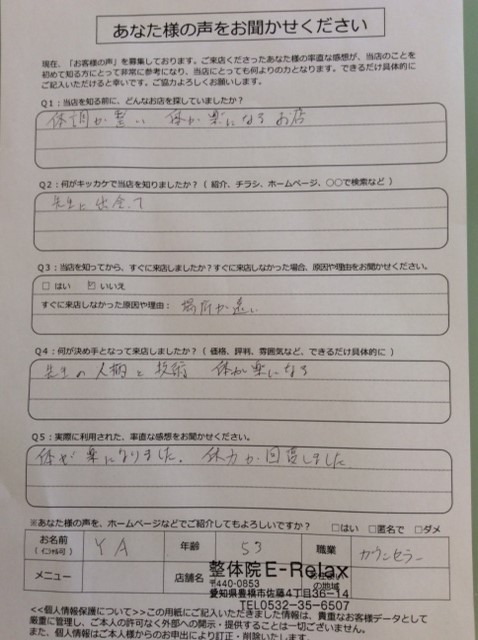 あなた様の声をお聞かせください
現在、「お客様の声」を募集しております。ご来店くださったあなた様の率直な感想が、当店のことを
初めて知る方にとって非常に参考になり、当店にとっても何よりの力となります。できるだけ具体的に
ご記入いただけると幸いです。ご協力よろしくお願いします。
Q1：当店を知る前に、どんなお店を探していましたか？
体調が整い 体が楽になるお店
Q2：何がキッカケで当店を知りましたか？（ 紹介、チラシ、ホームページ、〇〇で検索など ）
先生に出会って
Q3：当店を知ってから、すぐに来店しましたか？すぐに来店しなかった場合、原因や理由をお聞かせください。
□ はい ☑ いいえ
すぐに来店しなかった原因や理由： 場所が遠い
Q4：何が決め手となって来店しましたか？（ 価格、評判、雰囲気など、できるだけ具体的に ）
先生の人柄と技術 体が楽になる
Q5：実際に利用された、率直な感想をお聞かせください。
体が楽になりました。体力が回復しました
※あなた様の声を、ホームページなどでご紹介してもよろしいですか？ □はい □匿名で □ダメ
お名前 YA 年齢 53 職業 カウンセラー
（イニシャル可）
メニュー 店舗名 整体院E-Relax
の地域
〒440-0853
愛知県豊橋市佐藤4丁目36-14
TEL0532-35-6507
<<個人情報保護について>>この用紙にご記入いただきました情報は、貴重なお客様データとして
厳重に管理し、ご本人の許可なく外部への開示・提供することは一切ございません。
また、個人情報はご本人様からのお申出により訂正・削除いたします。